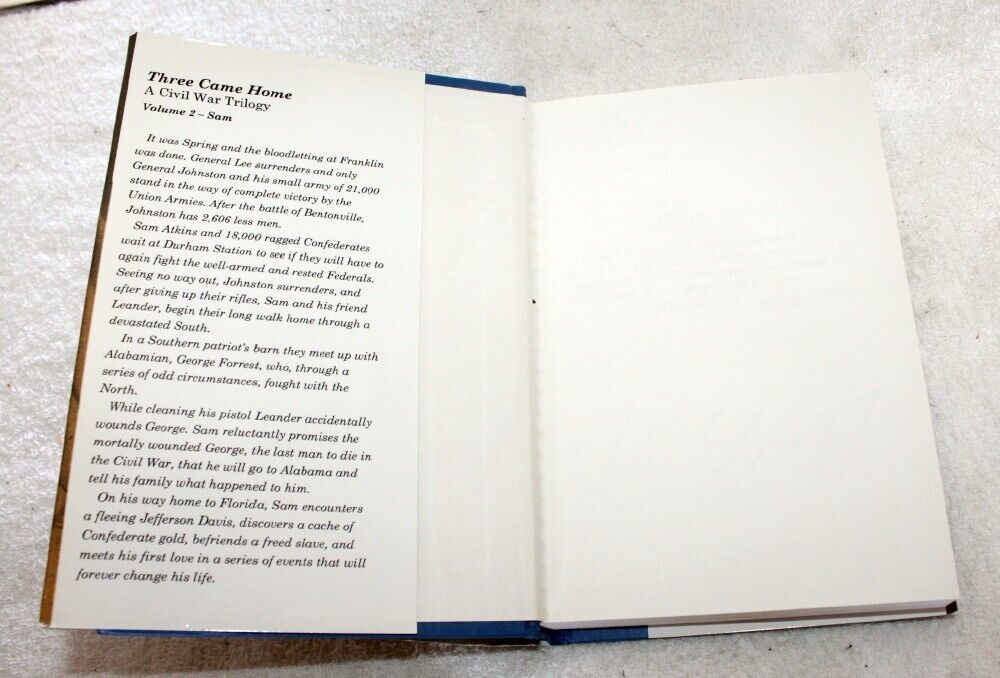 Three Came Home
A Civil War Trilogy
Volume 2 – Sam
It was Spring and the bloodletting at Franklin
was done. General Lee surrenders and only
General Johnston and his small army of 21,000
stand in the way of complete victory by the
Union Armies. After the battle of Bentonville,
Johnston has 2,606 less men.
Sam Atkins and 18,000 ragged Confederates
wait at Durham Station to see if they will have to
again fight the well-armed and rested Federals.
Seeing no way out, Johnston surrenders, and
after giving up their rifles, Sam and his friend
Leander, begin their long walk home through a
devastated South.
In a Southern patriot's barn they meet up with
Alabamian, George Forrest, who, through a
series of odd circumstances, fought with the
North.
While cleaning his pistol Leander accidentally
wounds George. Sam reluctantly promises the
mortally wounded George, the last man to die in
the Civil War, that he will go to Alabama and
tell his family what happened to him.
On his way home to Florida, Sam encounters
a fleeing Jefferson Davis, discovers a cache of
Confederate gold, befriends a freed slave, and
meets his first love in a series of events that will
forever change his life.